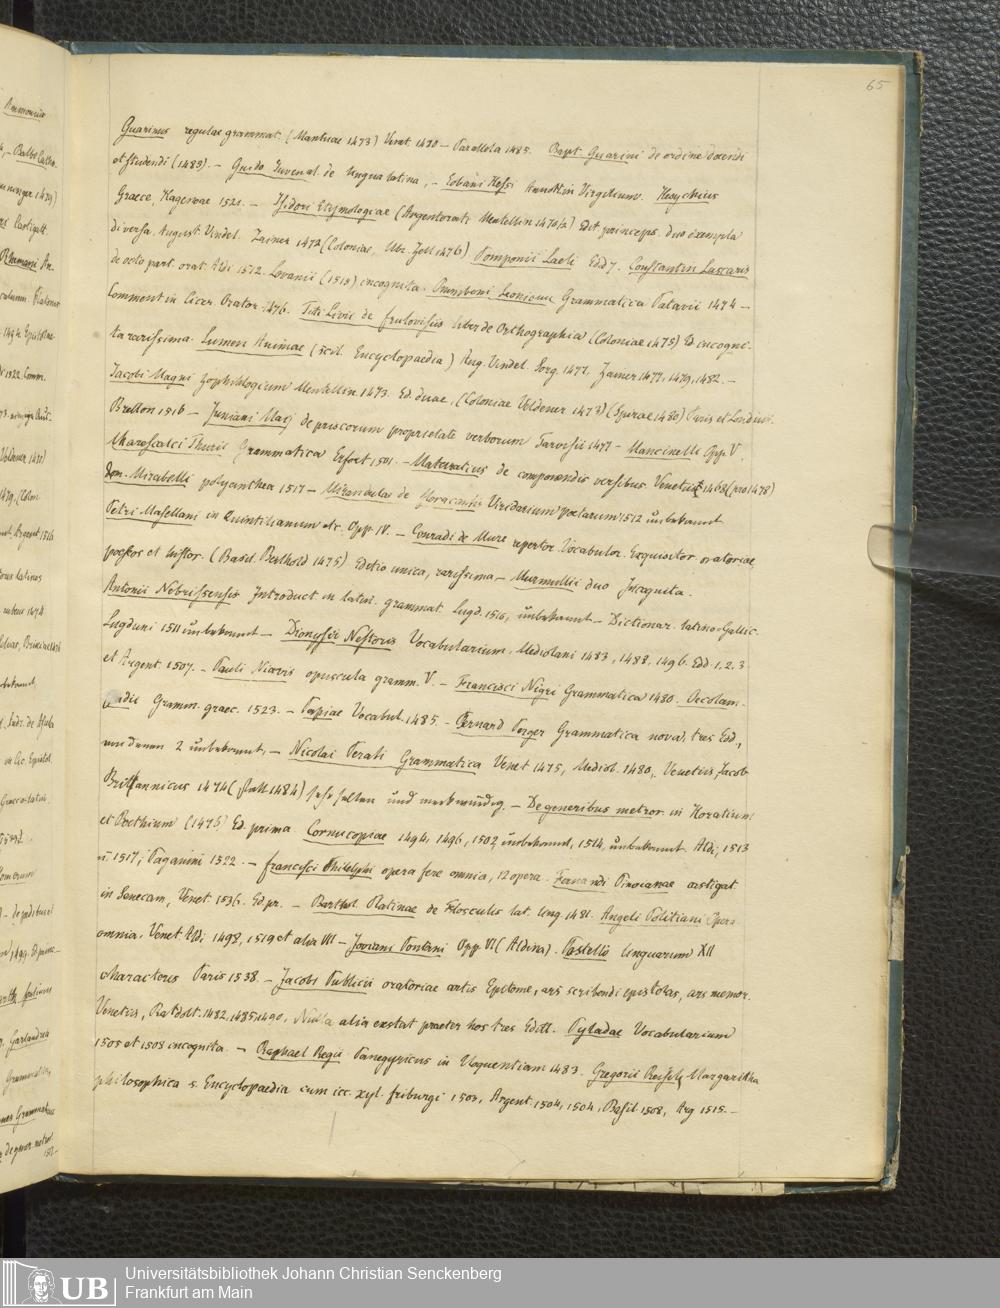 65
Guarinus regulae grammat. (Mantuae 1473) Venet. 1480 – Parallela 1485. Bapt. Guarini de ordine docendi
et studendi (1489). – Guido Juvenal. de lingua latina, – Eobani Hessi Annott. in Virgilium. Hesychius
Graece, Hagenoae 1521. – Isidori Etymologicae (Argentorati Mentellin 1470/2) Edit. princeps, duo exempla
diversa, August. Vindel. Zainer 1472 (Coloniae, Ulr. Zell 1476) Pomponii Laeti Edd 7. Constantin Lascaris
de octo part. orat. Aldi 1512. Lovanii (1515) incognita. Omniboni Leoniceni Grammatica Patavii 1474 –
Comment in Cicer. Orator. 1476. Titi Livii de frulovisiis liber de Orthographia (Coloniae 1475) Ed. incogni-
ta rarissima. Lumen Animae (scil. Encyclopaedia) Aug. Vindel. Sorg. 1477. Zainer 1477, 1479, 1482. –
Jacobi Magni Zophilologium Mentellin 1473. Ed. duae, (Coloniae Veldener 1473) (Spirae 1480) Paris et Londini.
Brellon 1516 – Juniani Maij de priscorum proprietate verborum Tarvisii 1477 – Mancinelli Opp. V.
Marescalci Thurii Grammatica Erfort 1501. – Mataratius de componendis versibus. Venetiis 1468 (pro 1478)
Dom. Mirabelli polyanthea 1517 – Mirandulas de Viridarium poetarum 1512 unbekannt
Petri Masellani in Quintilianum etc. Opp. IV. – Conradi de Mure repertor. Vocabulor. Exquisitor. oratoriae,
poeseos et histor. (Basil. Berthold 1475) Editio unica, rarissima – Murmellii duo Incognita.
Antonii Nebrissensis Introduct. in latin. grammat. Lugd. 1516, unbekannt – Dictionar. latino-Gallic.
Lugduni 1511 unbekannt – Dionysii Nestoris Vocabularium, Mediolani 1483, 1488, 1496. Edd. 1. 2. 3
et Argent. 1507. – Pauli Niavis opuscula gramm. V. – Francisci Nigri Grammatica 1480. Oecolam-
padii Gramm. graec. 1523. – Papiae Vocabul. 1485 – Bernard Perger Grammatica nova, tres Edd.,
von denen 2 unbekannt, – Nicolai Perati Grammatica Venet 1475, Mediol. 1480, Venetiis Jacob
Brittannicus 1474 (statt 1484) sehr selten und merkwürdig. – De generibus metror. in Horatium
et Boethium (1475) Ed. prima. Cornucopiae 1494, 1496, 1502, unbekannt, 1514, unbekannt. Aldi, 1513
u. 1517; Paganini 1522. – Francisci Philelphi opera fere omnia, 12 opera. Fernandi Pincianae castigat.
in Senecam, Venet. 1536. Ed. pr. – Barthol. Platinae de Flosculis lat. ling. 1481. Angeli Politiani Opera
omnia. Venet. Aldi 1498, 1519 et alia VII – Joviani Pontani Opp. VI (Aldina). Postellis linguarum XII
characteres Paris 1538. – Jacobi Publicii oratoriae artis Epitome, ars scribendi epistolas, ars memor.
Venetiis, Ratdolt. 1482, 1485, 1490. Nulla alia exstat praeter hos tres Editt. Pyladae Vocabularium
1505 et 1508 incognita. – Raphael Regii Panegyricus in Eloquentiam 1483. Gregorii Reisch Margaritha
philosophica s. Encyclopaedia cum icc. xyl. friburgi 1503, Argent. 1504, 1504, Basil. 1508, Arg. 1515. –
UB
Universitätsbibliothek Johann Christian Senckenberg
Frankfurt am Main